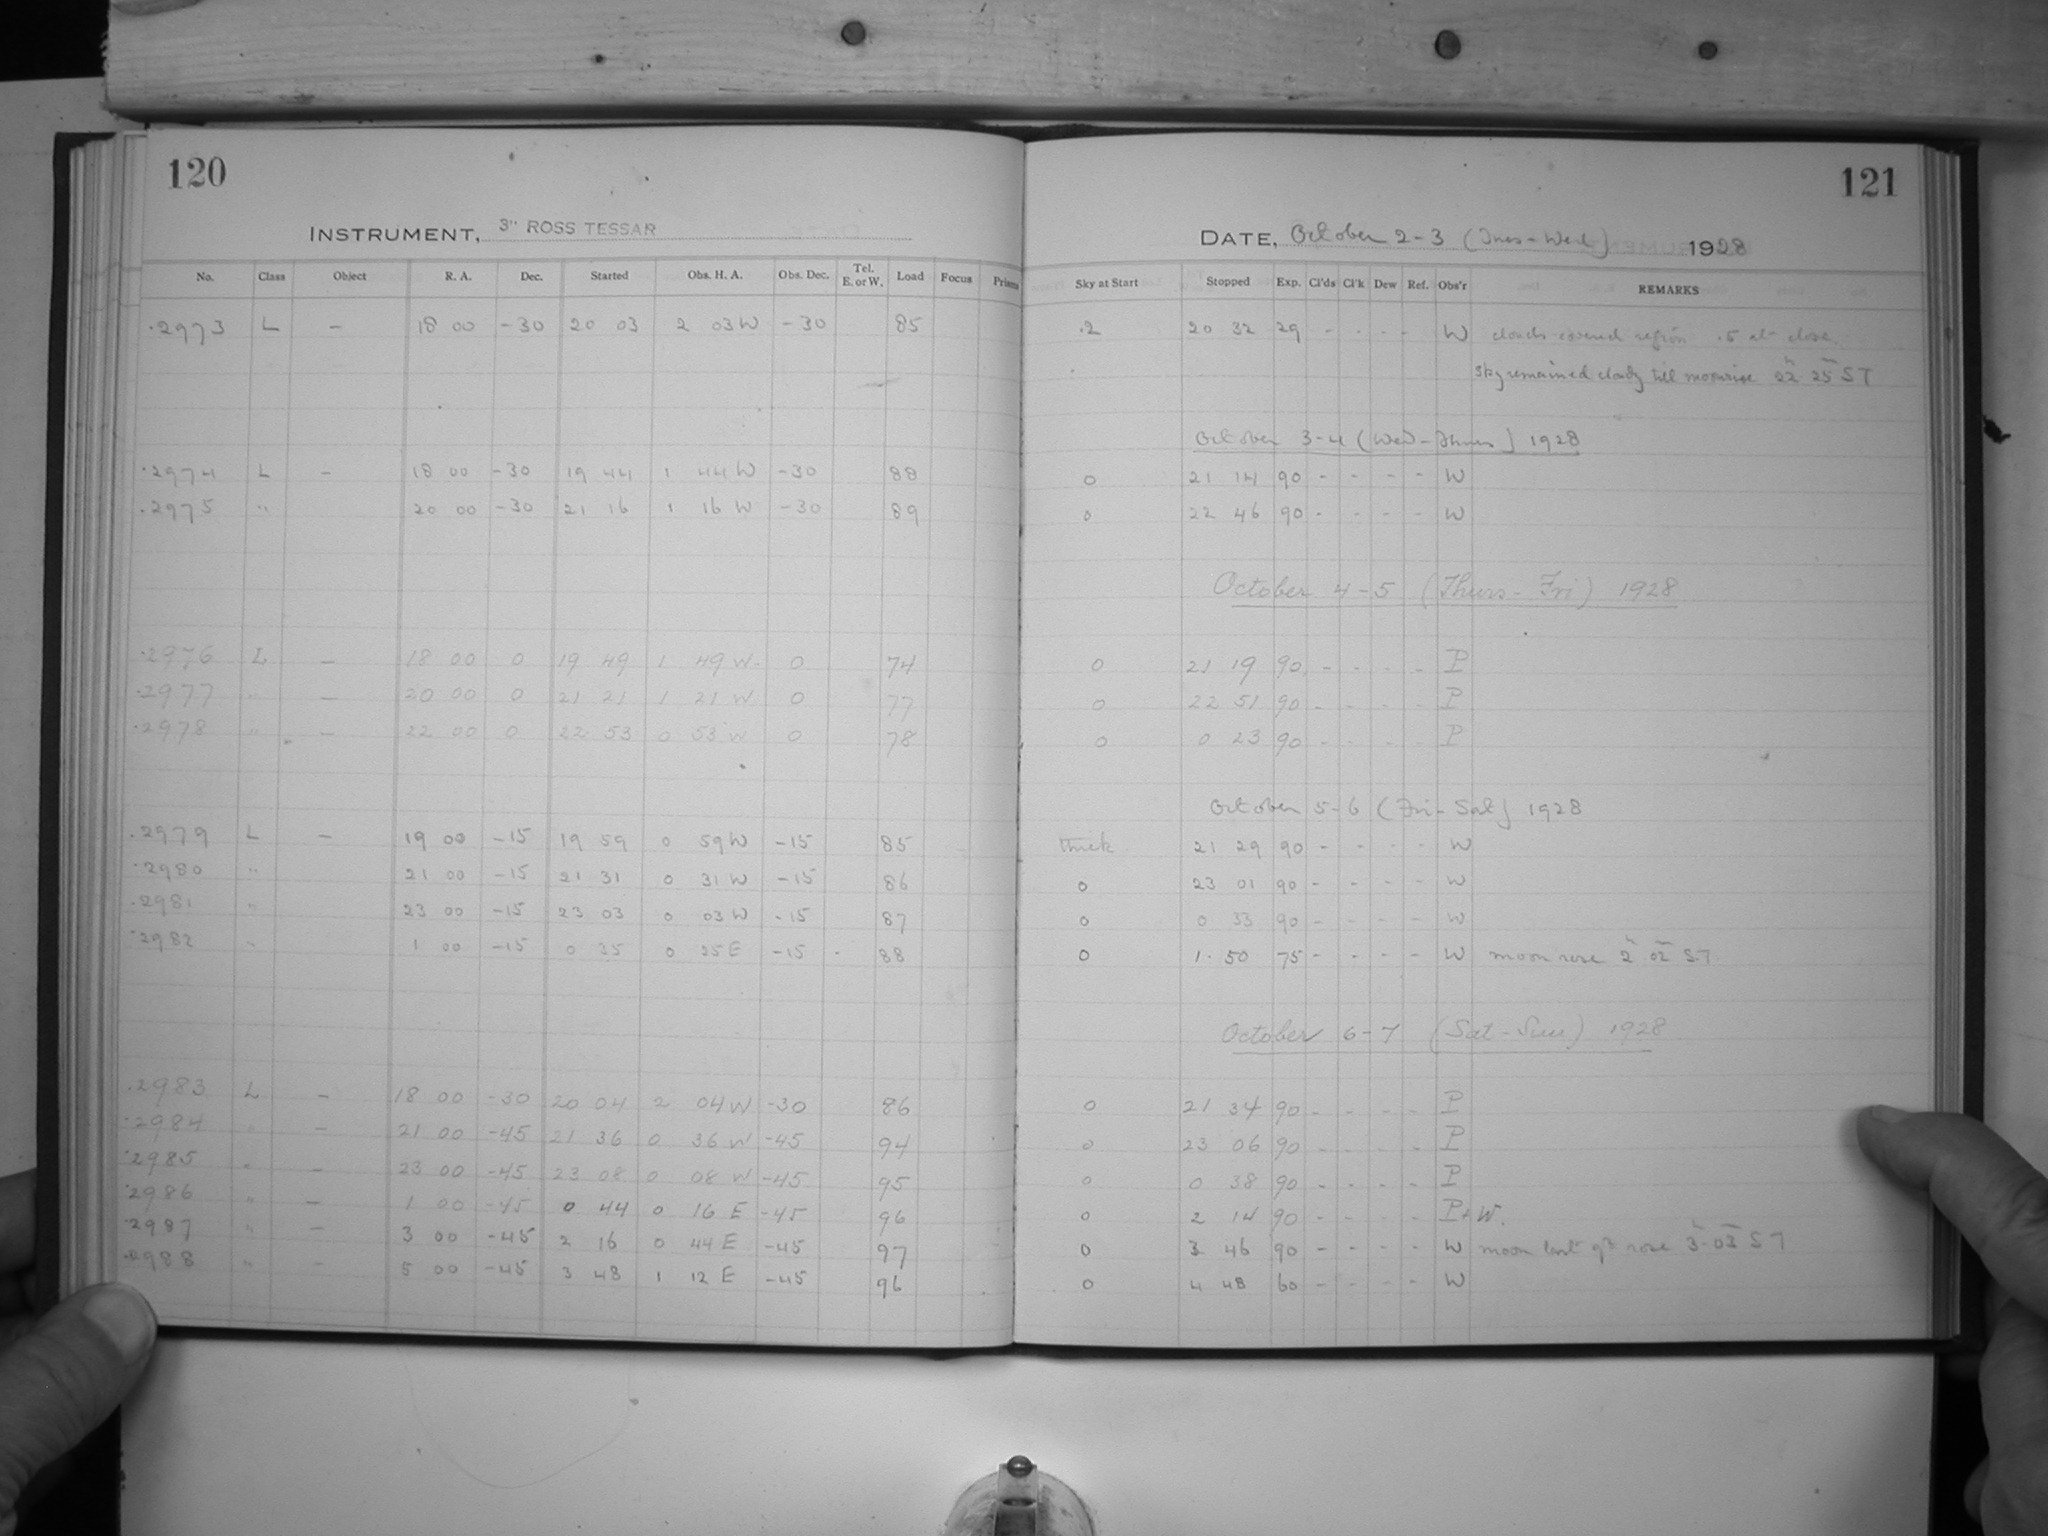 120
INSTRUMENT, 3" ROSS TESSAR
No. Class Object R. A. Dec. Started Obs. H. A. Obs. Dec. Tel. E. or W. Load Focus Prisms
.2973 L - 18 00 -30 20 03 2 03 W -30 85
.2974 L - 18 00 -30 19 44 1 44 W -30 88
.2975 " 20 00 -30 21 16 1 16 W -30 89
.2976 L - 18 00 0 19 49 1 49 W 0 74
.2977 " - 20 00 0 21 21 1 21 W 0 77
.2978 " - 22 00 0 22 53 0 53 W 0 78
.2979 L - 19 00 -15 19 59 0 59 W -15 85
.2980 " 21 00 -15 21 31 0 31 W -15 86
.2981 " 23 00 -15 23 03 0 03 W -15 87
.2982 " 1 00 -15 0 35 0 25 E -15 88
.2983 L - 18 00 -30 20 04 2 04 W -30 86
.2984 " - 21 00 -45 21 36 0 36 W -45 94
.2985 " - 23 00 -45 23 08 0 08 W -45 95
.2986 " - 1 00 -45 0 44 0 16 E -45 96
.2987 " - 3 00 -45 2 16 0 44 E -45 97
.2988 " - 5 00 -45 3 48 1 12 E -45 96
121
DATE, October 2-3 (Tues-Wed) 1928
Sky at Start Stopped Exp. Cl'ds Cl'k Dew Ref. Obs'r REMARKS
.2 20 32 29 - - - - W clouds covered region .5 at close
Sky remained cloudy till moonrise 22h 25m ST
October 3-4 (Wed-Thurs) 1928
0 21 14 90 - - - - W
0 22 46 90 - - - - W
October 4-5 (Thurs-Fri) 1928
0 21 19 90 - - - - P
0 22 51 90 - - - - P
0 0 23 90 - - - - P
October 5-6 (Fri-Sat) 1928
thick 21 29 90 - - - - W
0 23 01 90 - - - - W
0 0 33 90 - - - - W
0 1 50 75 - - - - W moon rose 2h 02m ST
October 6-7 (Sat-Sun) 1928
0 21 34 90 - - - - P
0 23 06 90 - - - - P
0 0 38 90 - - - - P
0 2 14 90 - - - - P+W.
0 3 46 90 - - - - W moon last qr rose 3h 03m ST
0 4 48 60 - - - - W